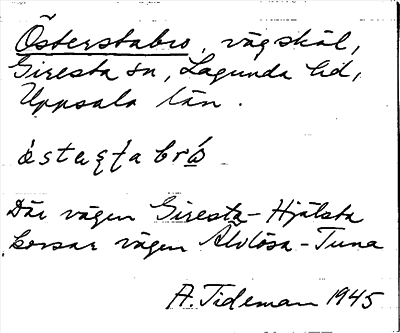 Österstabro, vägskäl,
Giresta sn, Lagunda hd,
Uppsala län.
Där vägen Giresta-Hjälsta
korsar vägen Älvlösa-Tuna
A. Tideman 1945